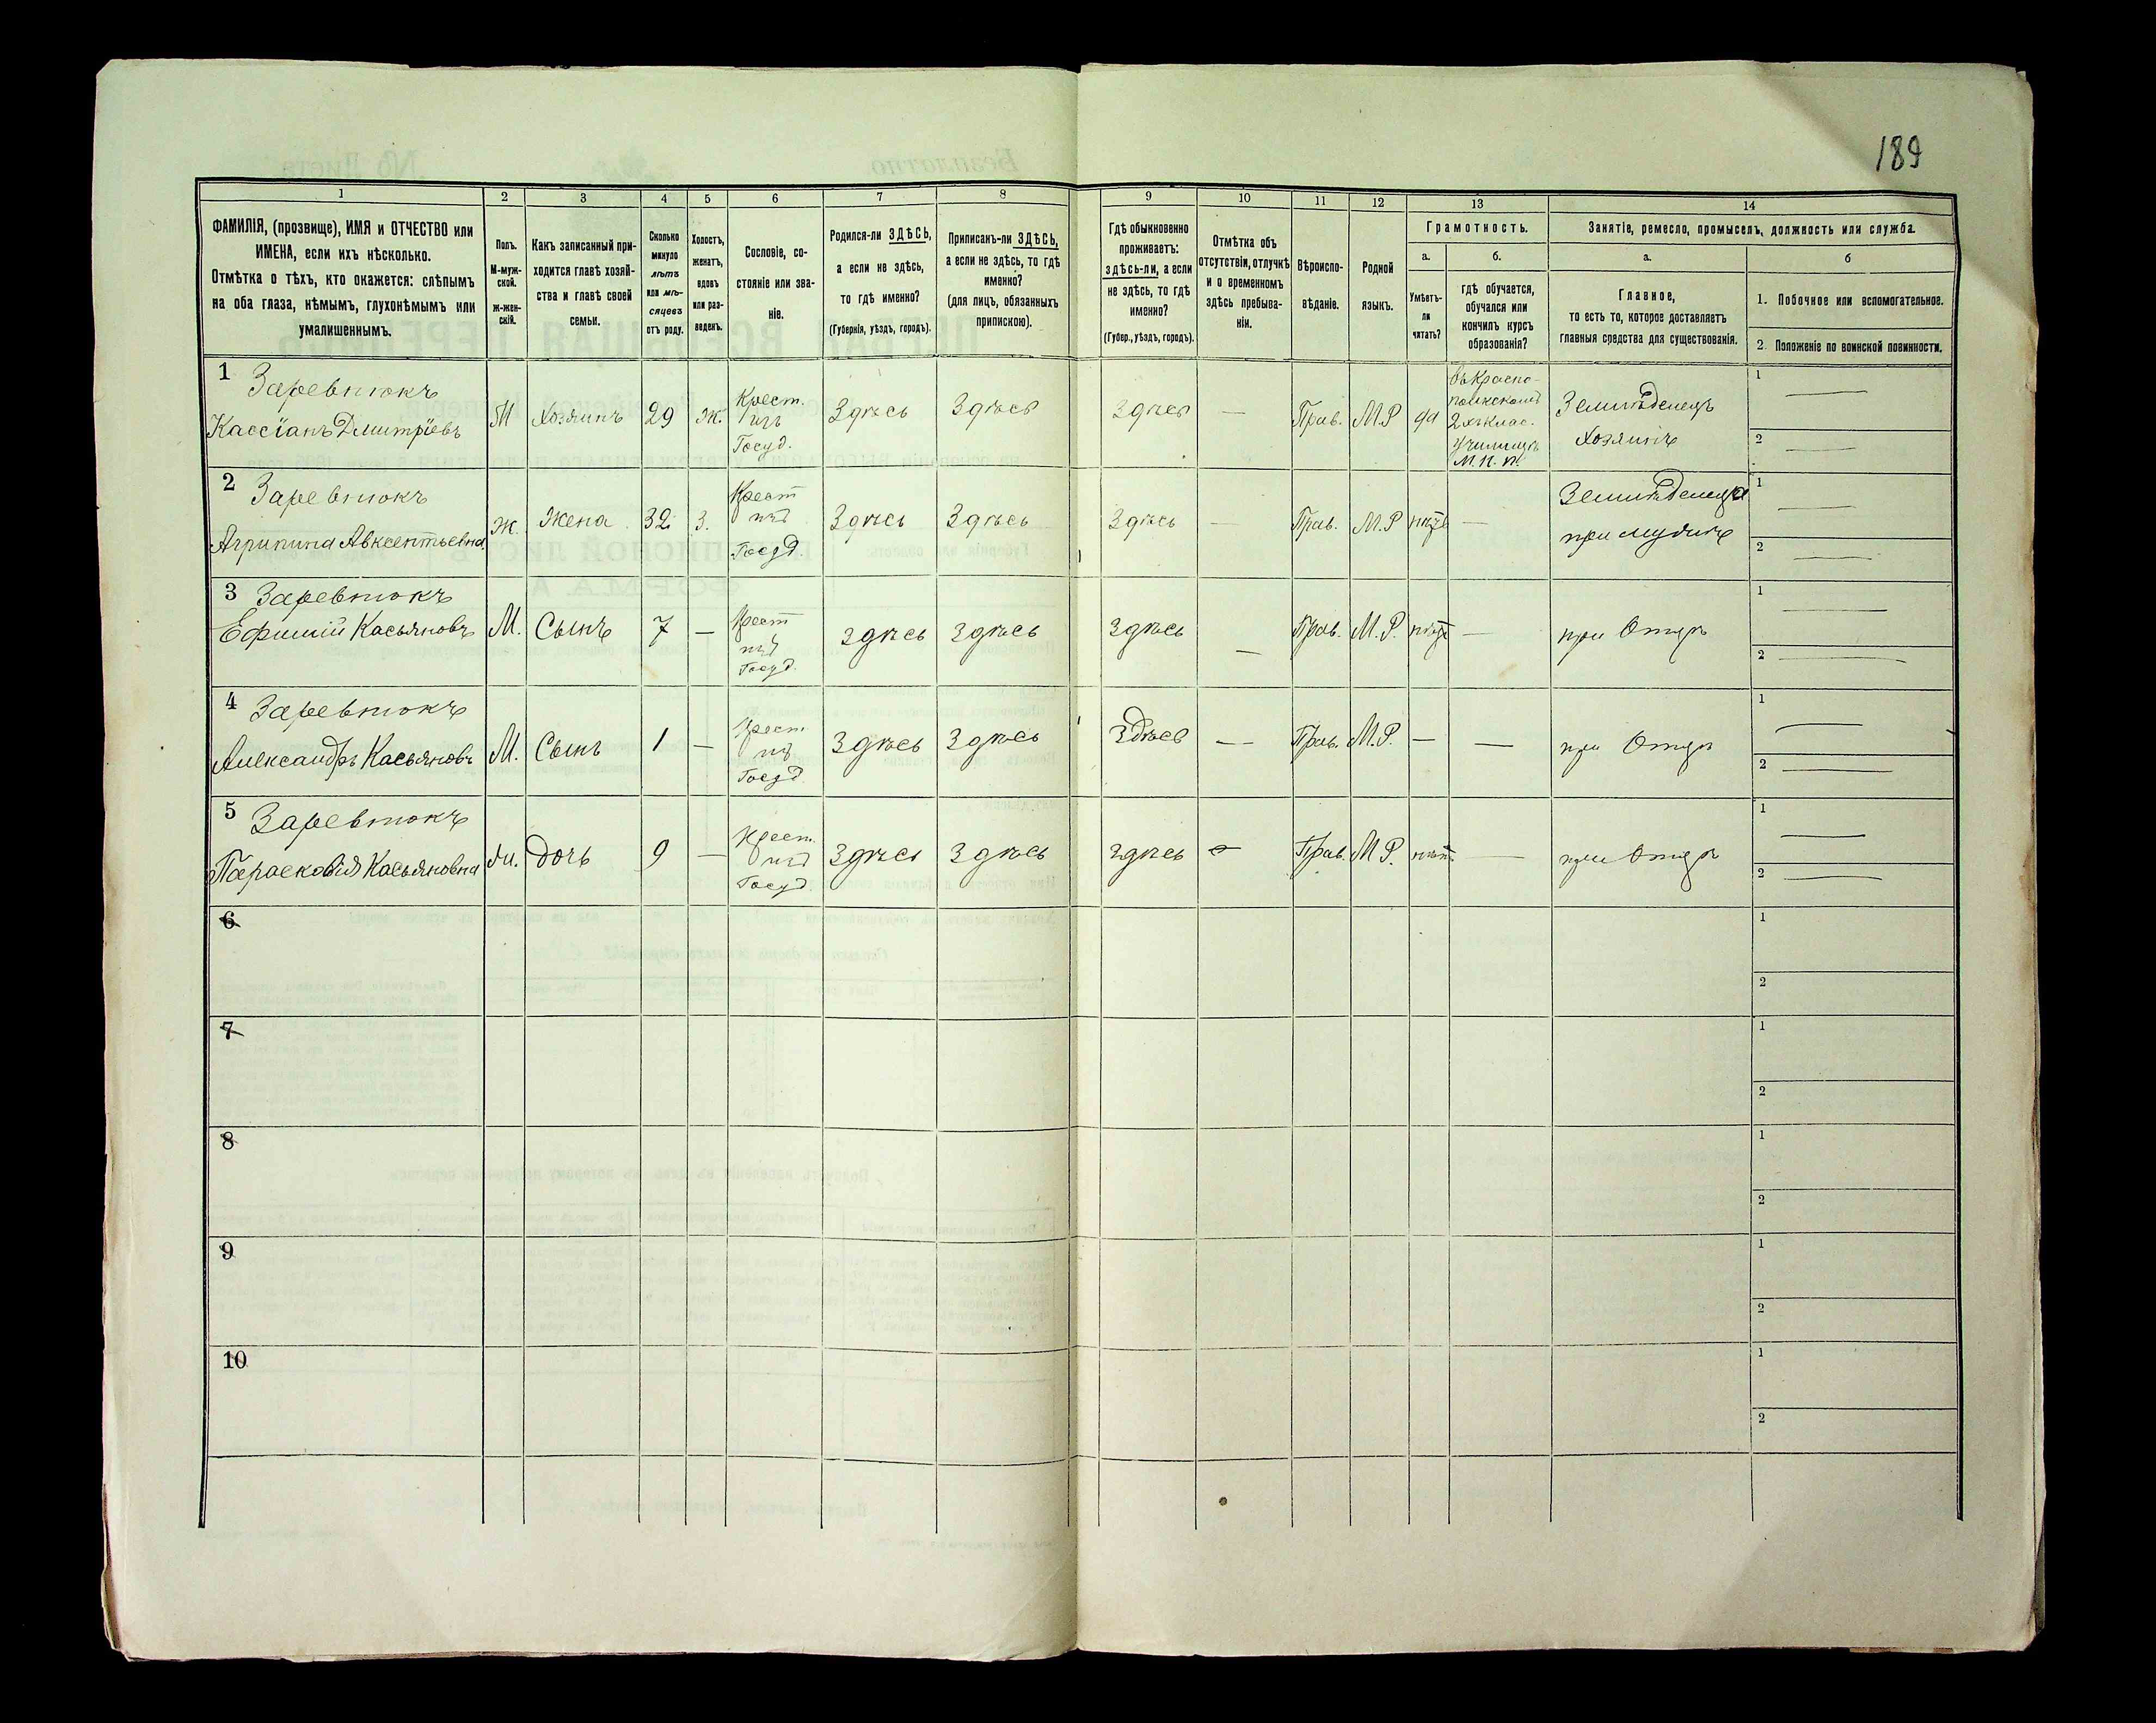 189
1 2 3 4 5 6 7 8 9 10 11 12 13 14
ФАМИЛІЯ, (прозвище), ИМЯ и ОТЧЕСТВО или
ИМЕНА, если ихъ нѣсколько.
Отмѣтка о тѣхъ, кто окажется: слѣпымъ
на оба глаза, нѣмымъ, глухонѣмымъ или
умалишеннымъ.
Полъ.
М-муж-
ской.
ж-жен-
скій.
Какъ записанный при-
ходится главѣ хозяй-
ства и главѣ своей
семьи.
Сколько
минуло
лѣтъ
или мѣ-
сяцевъ
отъ роду.
Холостъ,
женатъ,
вдовъ
или раз-
веденъ.
Сословіе, со-
стояніе или зва-
ніе.
Родился-ли ЗДѢСЬ,
а если не здѣсь,
то гдѣ именно?
(Губернія, уѣздъ, городъ).
Приписанъ-ли ЗДѢСЬ,
а если не здѣсь, то гдѣ
именно?
(для лицъ, обязанныхъ
припискою).
Гдѣ обыкновенно
проживаетъ:
здѣсь-ли, а если
не здѣсь, то гдѣ
именно?
(Губер., уѣздъ, городъ).
Отмѣтка объ
отсутствіи, отлучкѣ
и о временномъ
здѣсь пребыва-
ніи.
Вѣроиспо-
вѣданіе.
Родной
языкъ.
Грамотность.
а.
Умѣетъ-
ли
читать?
б.
гдѣ обучается,
обучался или
кончилъ курсъ
образованія?
Занятіе, ремесло, промыселъ, должность или служба.
а.
Главное,
то есть то, которое доставляетъ
главныя средства для существованія.
б
1. Побочное или вспомогательное.
2. Положеніе по воинской повинности.
1 Заревнюкъ
Кассіанъ Дмитріевъ
М Хозяинъ 29 Ж.
Крест.
изъ
Госуд.
Здѣсь Здѣсь Здѣсь — Прав. М.Р да
2хъ Клас.
училищѣ
М. н. п.
Земледѣлецъ
Хозяинъ
1 —
2 —
2 Заревнюкъ
Агрипина Авксентьевна
Ж. Жена 32 З.
Крест
изъ
Госуд.
Здѣсь Здѣсь Здѣсь — Прав. М.Р нѣтъ —
при мужѣ
1 —
2 —
3 Заревнюкъ
Ефимій Касьяновъ
М. Сынъ 7 —
Крест
изъ
Госуд.
здѣсь Здѣсь Здѣсь — Прав. М.Р. нѣтъ —
при Отцѣ
1 —
2 —
4 Заревнюкъ
Александръ Касьяновъ
М. Сынъ 1 —
Крест.
изъ
Госуд.
Здѣсь Здѣсь Здѣсь — Прав. М.Р. — —
при Отцѣ
1 —
2 —
5 Заревнюкъ
Парасковія Касьяновна
дочь 9 —
Крест.
изъ
Госуд.
Здѣсь Здѣсь здѣсь — Прав. М Р. нѣтъ —
при Отцѣ
1 —
2 —
6
1
2
7
1
2
8
1
2
9
1
2
10
1
2